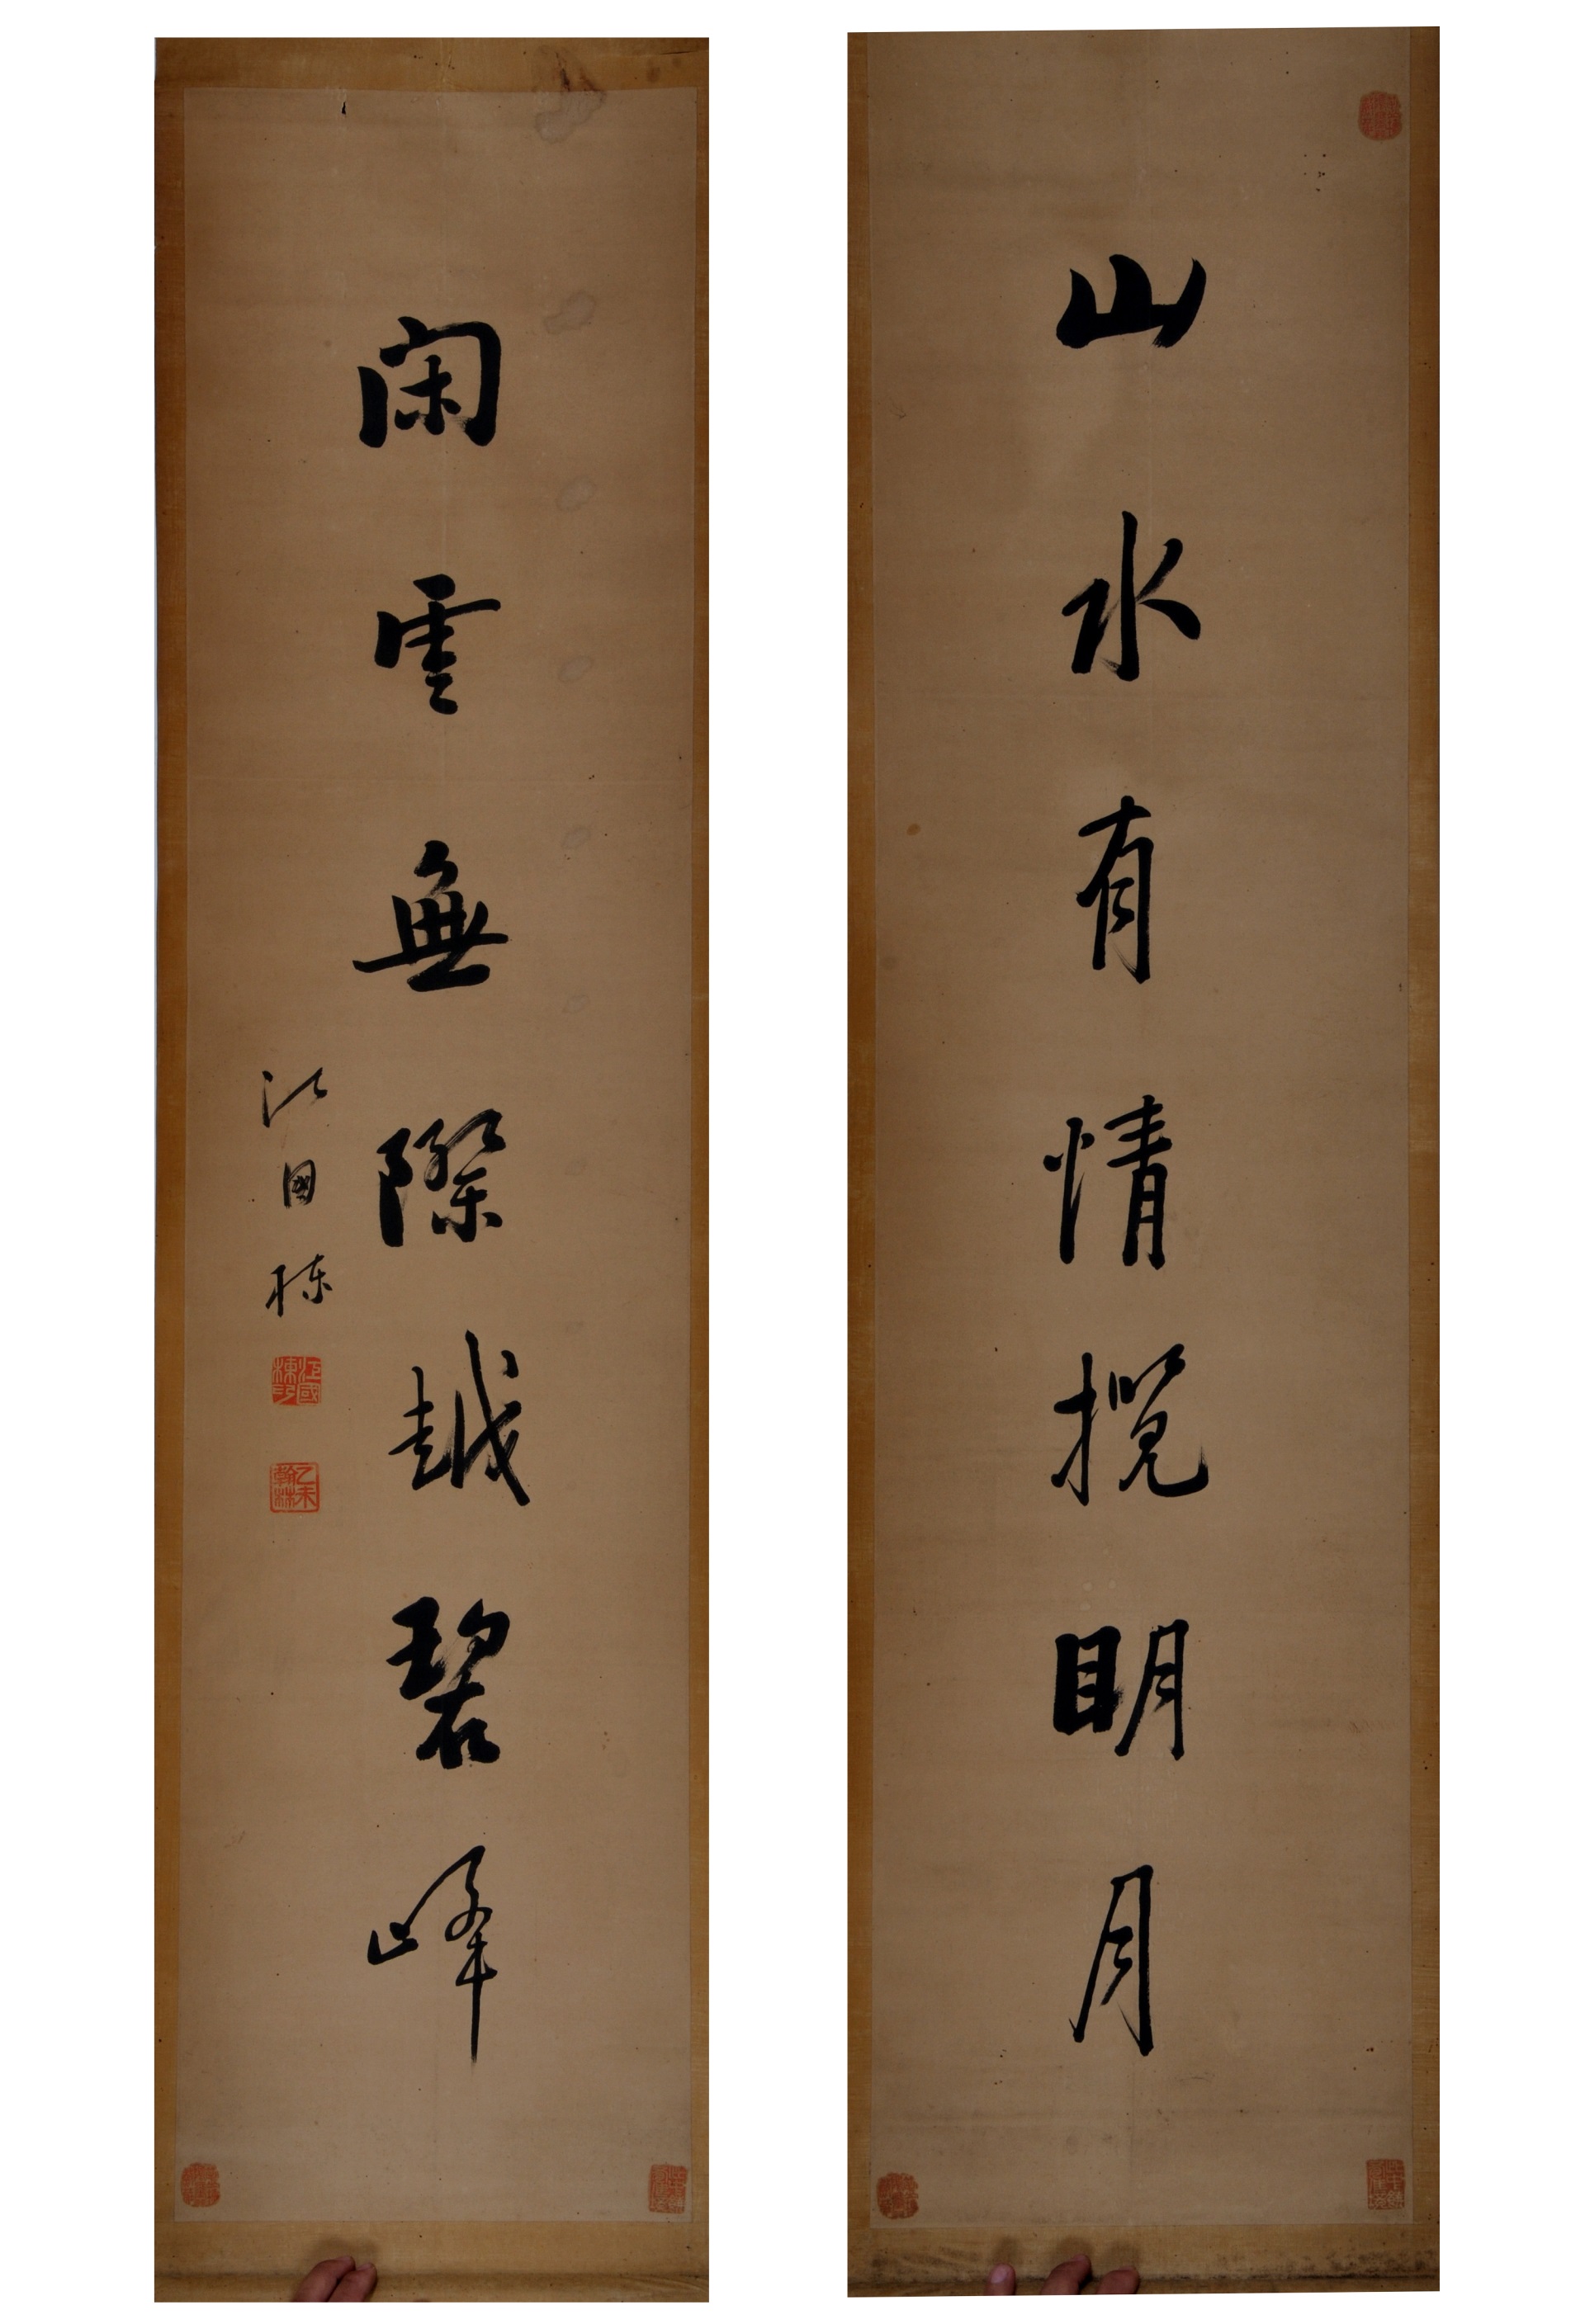 山水有情攬明月
閑雲無際越碧峰
江國棟
江國棟印
乙未翰林